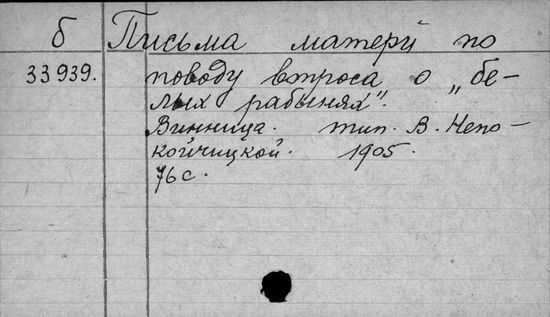 б Письма матери по
33939. поводу вопроса о „бе-
лых рабынях".
Винница. тип. В. Непо-
койчицкой. 1905.
76 с.